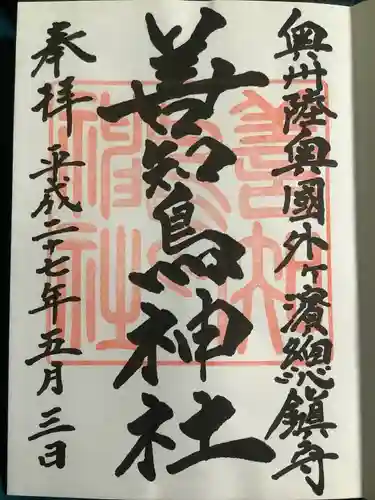 奥州陸奥國外ヶ濱總鎮守
善知鳥神社
奉拝 平成二十七年五月三日